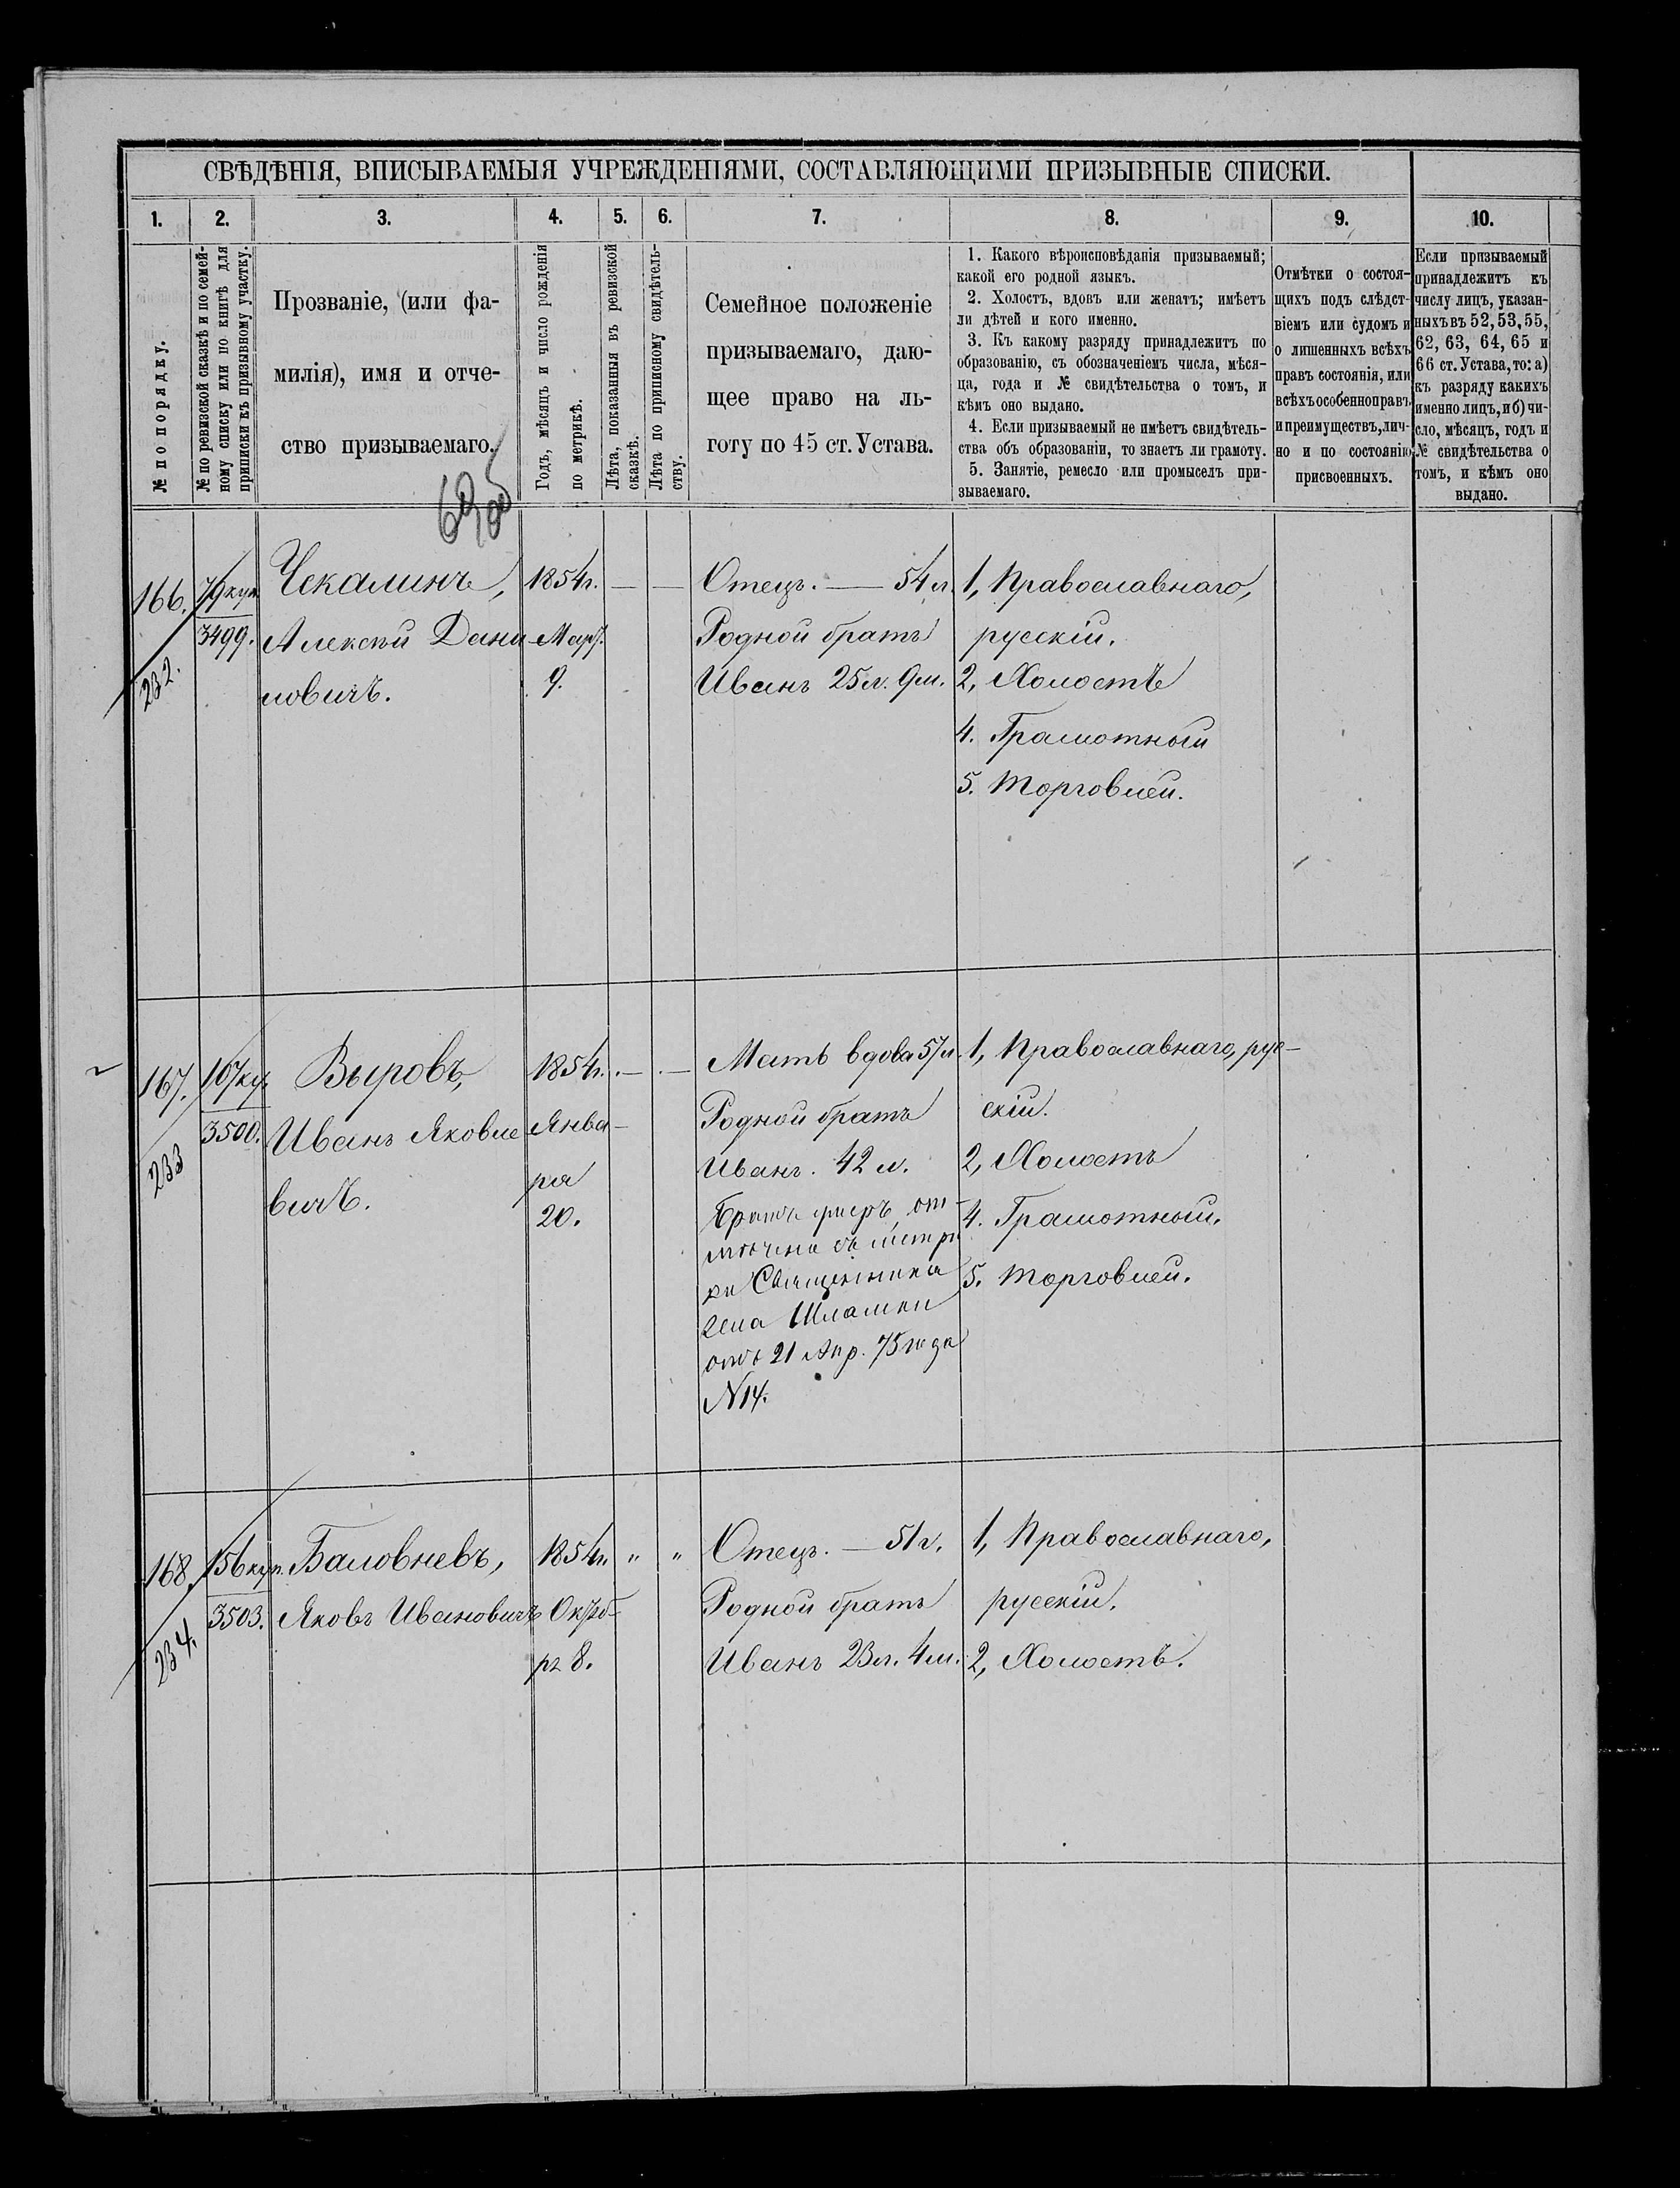 СВѢДѢНІЯ, ВПИСЫВАЕМЫЯ УЧРЕЖДЕНІЯМИ, СОСТАВЛЯЮЩИМИ ПРИЗЫВНЫЕ СПИСКИ.
1. 2. 3. 4. 5. 6. 7. 8. 9. 10.
№ по порядку.
№ по ревизской сказкѣ и по семей-
ному списку или по книгѣ для
приписки къ призывному участку.
Прозваніе, (или фа-
милія), имя и отче-
ство призываемаго.
Годъ, мѣсяцъ и число рожденія
по метрикѣ.
Лѣта, показанныя въ ревизской
сказкѣ.
Лѣта по приписному свидѣтель-
ству.
Семейное положеніе
призываемаго, даю-
щее право на ль-
готу по 45 ст. Устава.
1. Какого вѣроисповѣданія призываемый;
какой его родной языкъ.
2. Холостъ, вдовъ или женатъ; имѣетъ
ли дѣтей и кого именно.
3. Къ какому разряду принадлежитъ по
образованію, съ обозначеніемъ числа, мѣся-
ца, года и № свидѣтельства о томъ, и
кѣмъ оно выдано.
4. Если призываемый не имѣетъ свидѣтель-
ства объ образованіи, то знаетъ ли грамоту.
5. Занятіе, ремесло или промыселъ при-
зываемаго.
Отмѣтки о состоя-
щихъ подъ слѣдст-
віемъ или судомъ и
о лишенныхъ всѣхъ
правъ состоянія, или
всѣхъ особенно правъ
и преимуществъ, лич-
но и по состоянію
присвоенныхъ.
Если призываемый
принадлежитъ къ
числу лицъ, указан-
ныхъ въ 52, 53, 55,
62, 63, 64, 65 и
66 ст. Устава, то: а)
къ разряду какихъ
именно лицъ, и б) чи-
сло, мѣсяцъ, годъ и
№ свидѣтельства о
томъ, и кѣмъ оно
выдано.
69 об
166.
232.
79 куп.
3499.
Чекалинъ,
Алексѣй Дани
ловичъ.
1854 г.
Март.
9.
— —
Отецъ. — 54 л.
Родной братъ
Иванъ 25 л. 9 м.
1, Православнаго,
русскій.
2, Холостъ
4. Грамотный
5. Торговлей.
167.
233
107 ку.
3500.
Выровъ,
Иванъ Яковле
вичъ.
1854 г.
Янва-
ря
20.
— —
Мать вдова 57 л.
Родной братъ
Иванъ. 42 л.
от-
Священника
села
отъ 21 Апр. 75 года
N 14.
1, Православнаго, рус-
скій.
2, Холостъ
4. Грамотный.
5. Торговлей.
168.
234.
156 куп.
3503.
Баловневъ,
Яковъ Ивановичъ
1854 г.
Октяб-
ря 8.
" "
Отецъ. — 51 г.
Родной братъ
Иванъ 23 л. 4 м.
1, Православнаго,
русскій.
2, Холостъ.